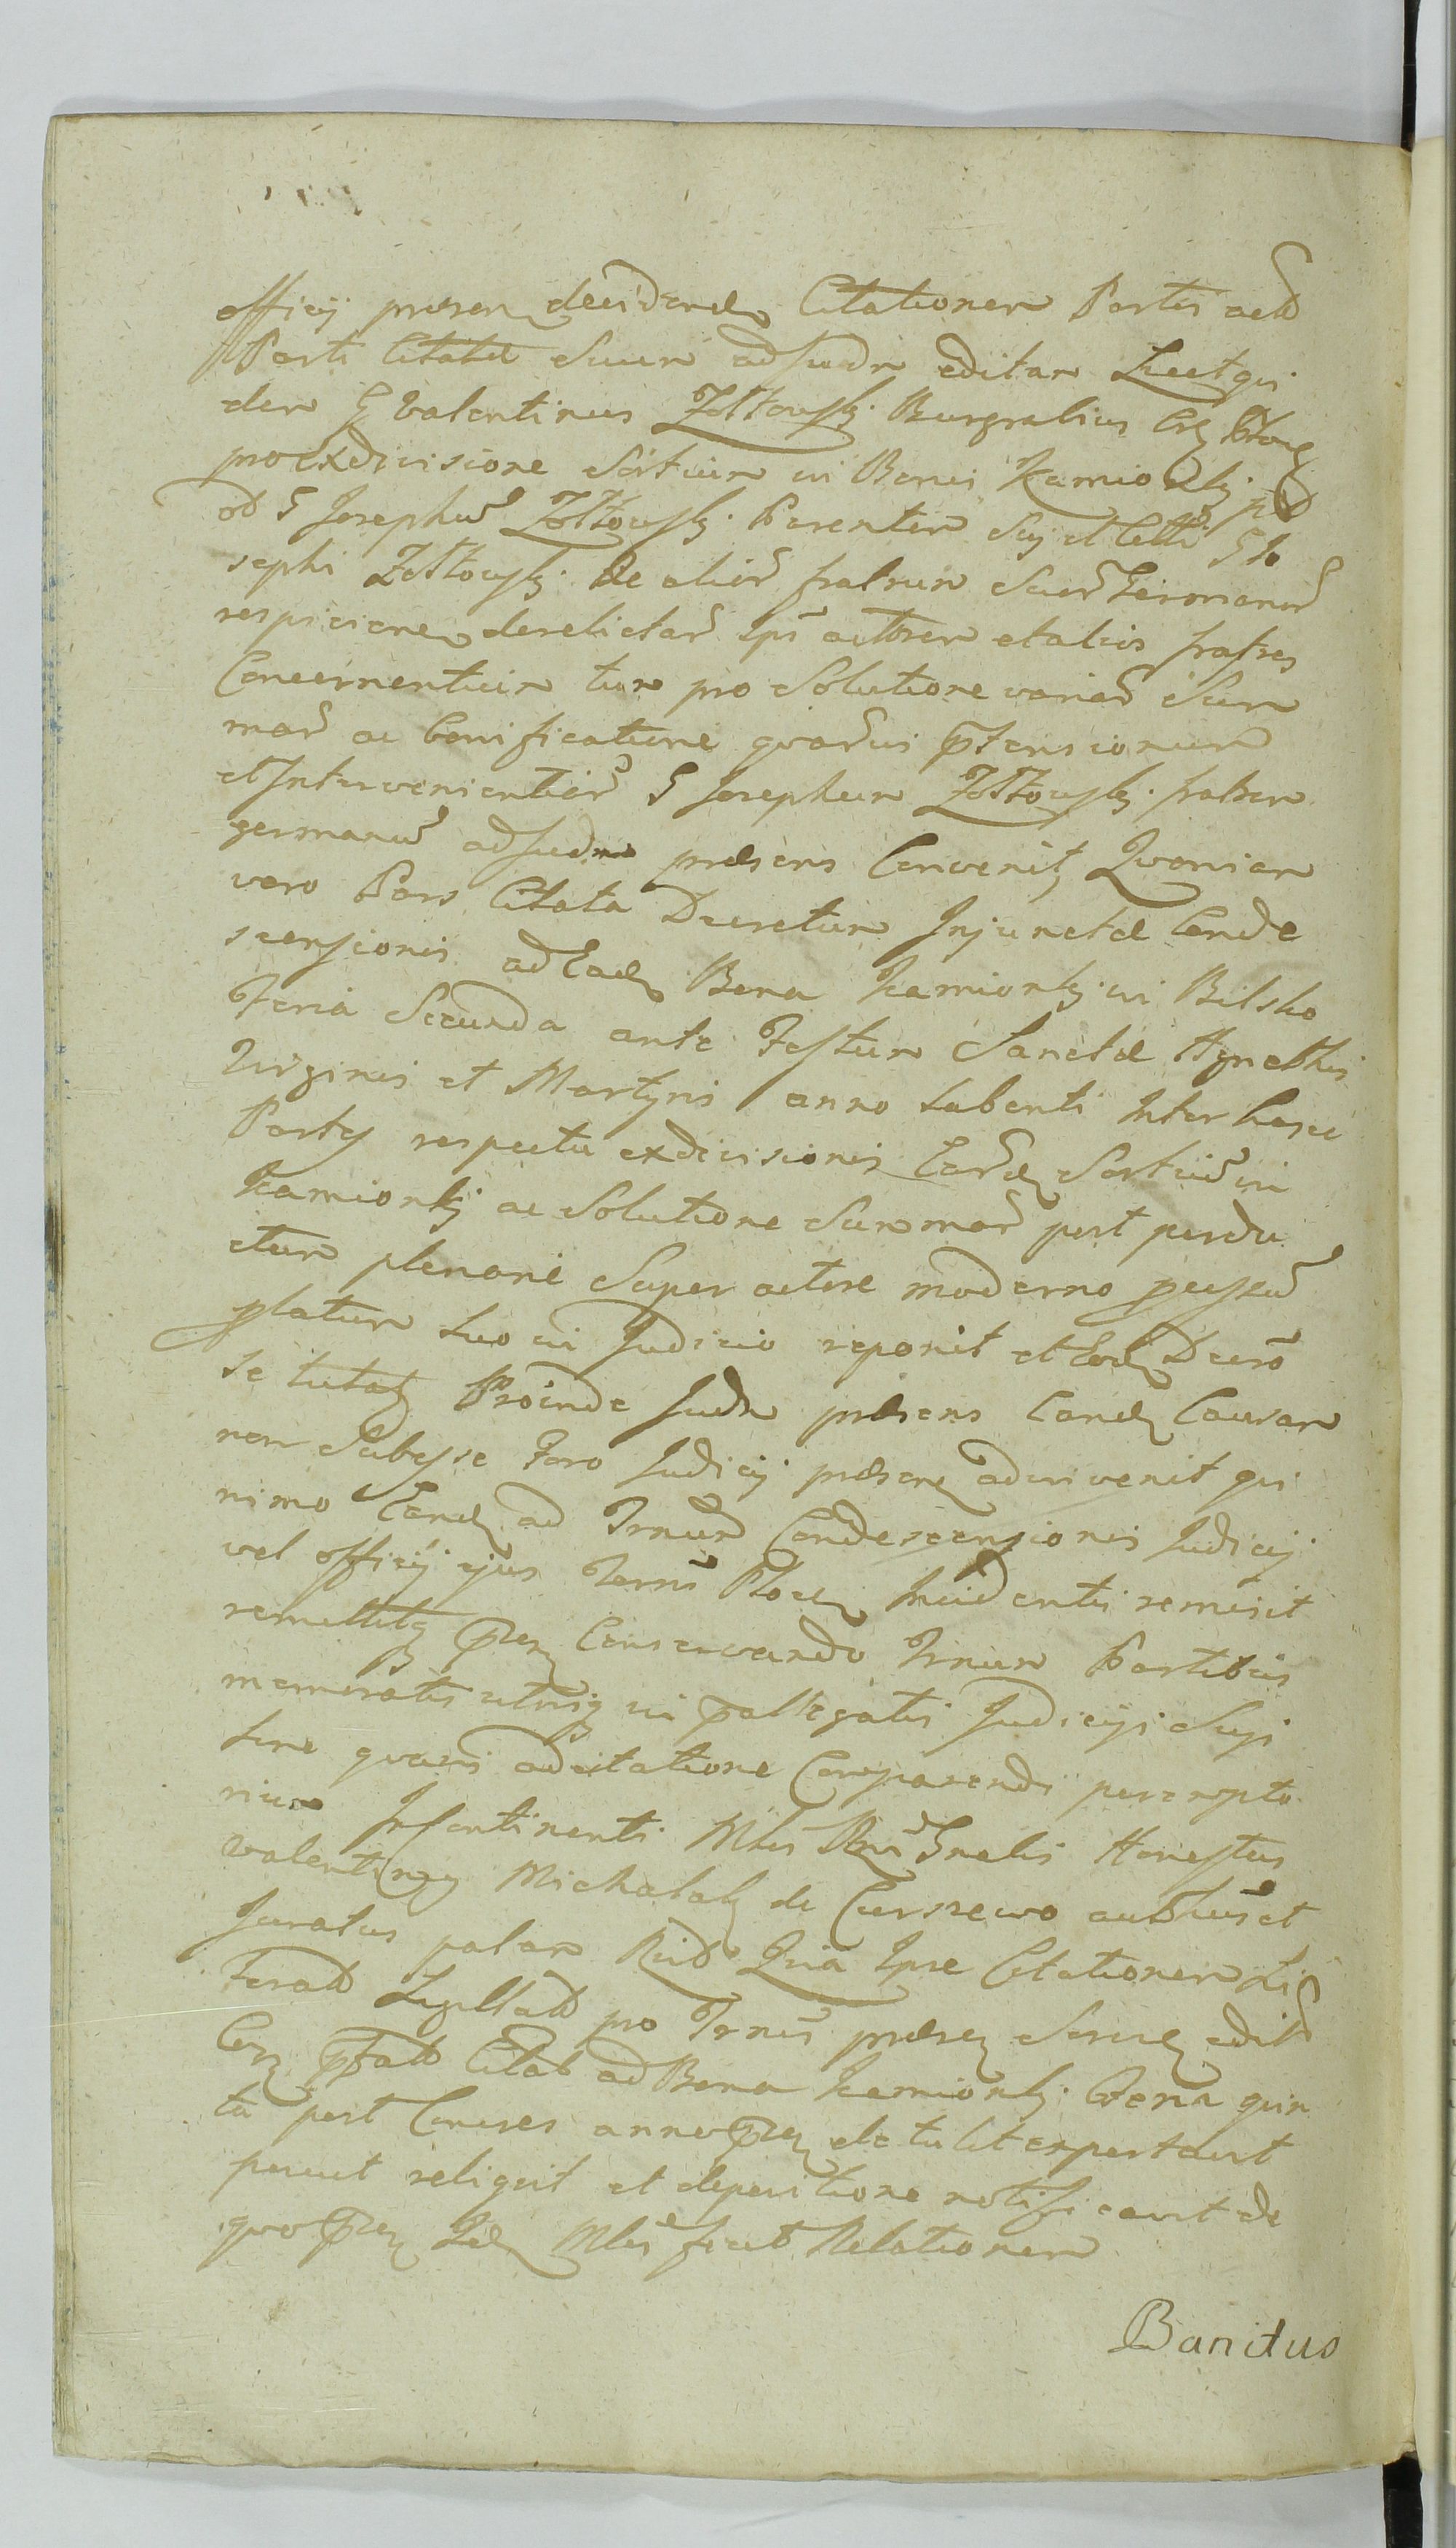 officij presen decidend Citationem Partis act
Parti Citatæ Suum ad Judm editam Licet qui
dem G Valentinus Zołtowskj Burgrabius
pro exdivisione Sortium in Bonis Kamionkj p
ad G Josephum Zołtowskj Parentem Sui et G Jo
sephi Zołtowskj de alior fratrum Suor Germanor
respicien derelictar Ips actorem et alios fratres
Concernentium tum pro Solutione variar Sum
mar ac bonificatione quarvis ptensionum
et Intervenientior G Josephum Zołtowskj fratrem
germanum ad Judm præsens Convenit Quoniam
vero Pars Citata Decretum Injunctæ Conde
scensionis ad Ead Bona Kamionkj in Bilsko
Feria Secunda ante Festum Sanctæ Agnethis
Virginis et Martyris anno Labenti Inter hasce
Partes respectu exdivisionis Eard Sortium in
Kamionkj ac Solutione Summar post perdu
ctum plenarie Super actore moderno
platum Suo in Judicio reponit et Eod Decro
se tutatq Proinde Judm præsens Eand Causam
non Subesse Foro Judicij præsen adinvenit qui
nimo Eand ad Trnum Condescensionis Judicij
vel officij ejus Terris Ploc Incidentis remisit
remittitq pen Conservando Trnum Partibus
memoratis utrisq in pallegatis Judicijs Sup
sine quavis adcitatione Comparendi perempto
rium Incontinenti Mltis Rni Gnalis Honestus
Valentinus Michalak de Curszewo authus et
Juratus palam Rcd Quia Ipse Citationem Lit
terat Sigillat pro Trnis præsen Serie edit
Con pfat Citat ad Bona Kamionkj Feria quin
ta post Cineres anno pen detulit exportavit
posuit reliquit et depositione notificavit de
quo pen Id Mltis fecit Relationem
Banitus